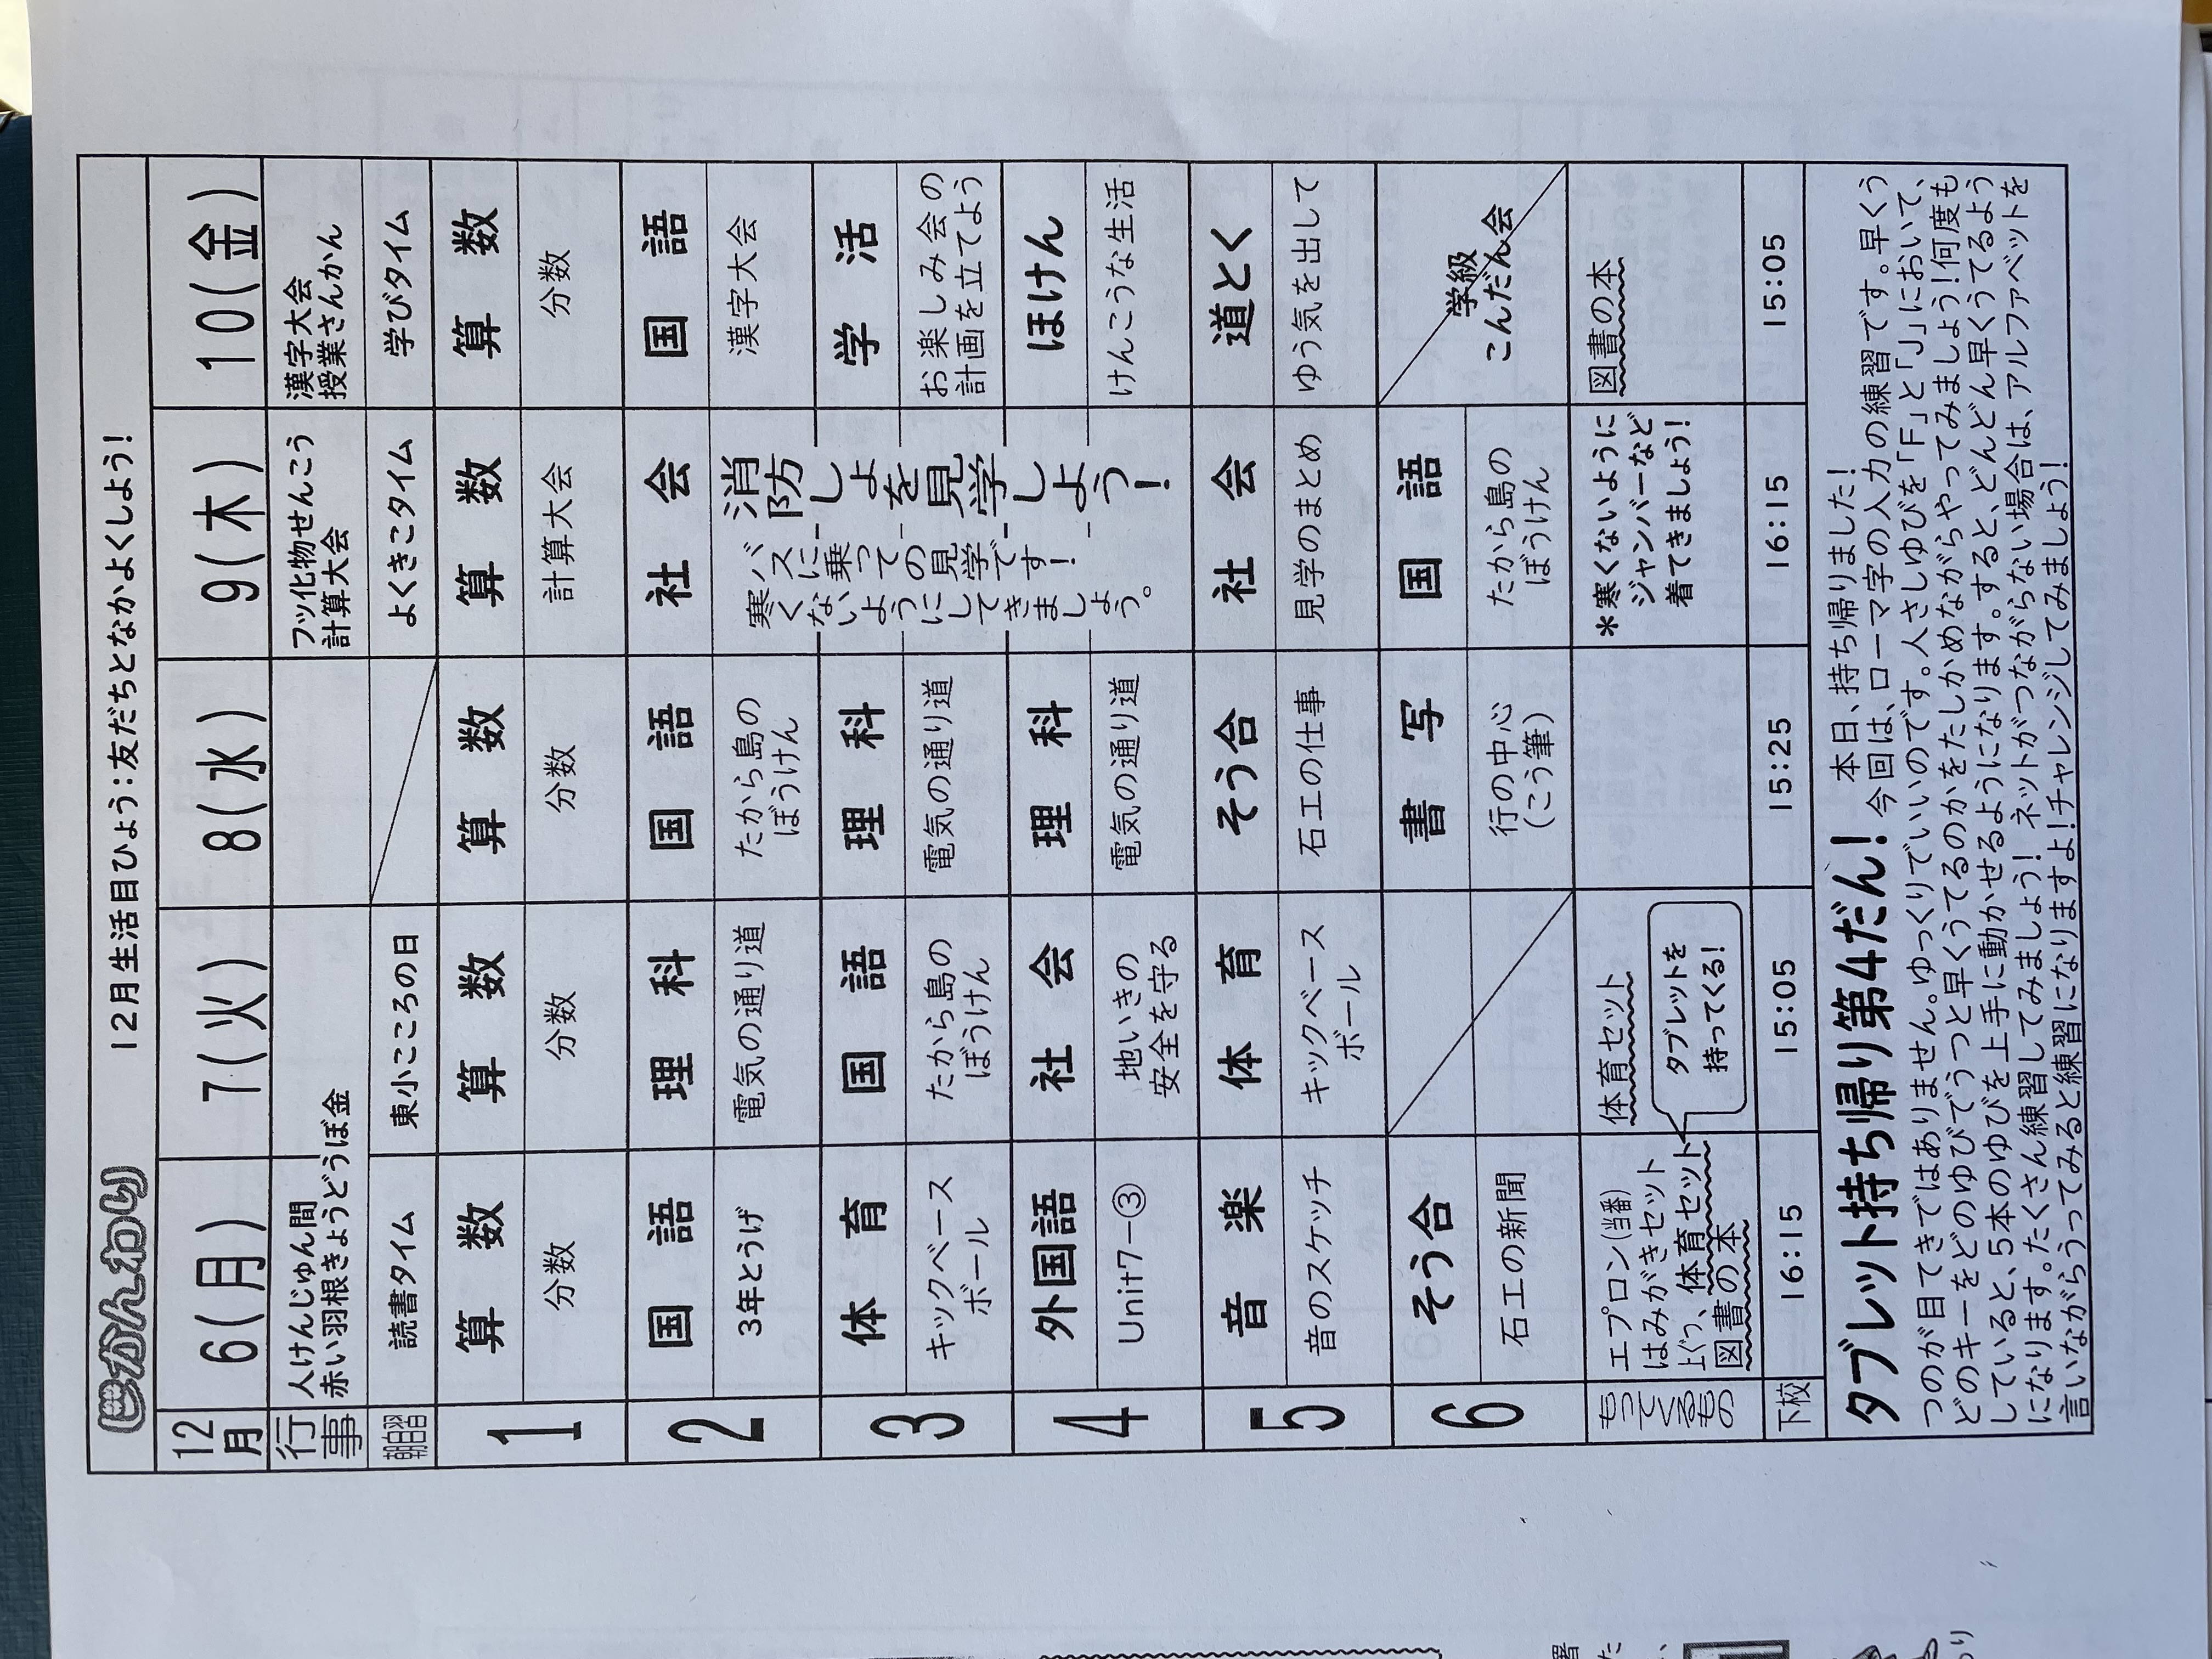 じかんわり　12月生活目ひょう：友だちとなかよくしよう！
12月　6(月)　7(火)　8(水)　9(木)　10(金)
行事　人けんじゅん間　フッ化物せんこう　漢字大会
赤い羽根きょうどうぼ金　計算大会　授業さんかん
朝自習　読書タイム　東小こころの日　よくきこタイム　学びタイム
1　算数　算数　算数　算数　算数
分数　分数　分数　計算大会　分数
2　国語　理科　国語　社会　国語
3年とうげ　電気の通り道　たから島の　漢字大会
ぼうけん
3　体育　国語　理科　学活
キックベース　たから島の　電気の通り道　お楽しみ会の
ボール　ぼうけん　計画を立てよう
4　外国語　社会　理科　ほけん
Unit7-③　地いきの　電気の通り道　けんこうな生活
安全を守る
消防しょを見学しよう！
バスに乗っての見学です！
寒くないようにしてきましょう。
5　音楽　体育　そう合　社会　道とく
音のスケッチ　キックベース　石工の仕事　見学のまとめ　ゆう気を出して
ボール
6　そう合　書写　国語　学級
こんだん会
石工の新聞　行の中心　たから島の
(こう筆)　ぼうけん
もってくるもの　エプロン(当番)　体育セット　＊寒くないように　図書の本
はみがきセット　ジャンバーなど
上ぐつ、体育セット　タブレットを　着てきましょう！
図書の本　持ってくる！
下校　16:15　15:05　15:25　16:15　15:05
タブレット持ち帰り第4だん！　本日、持ち帰りました！
今回は、ローマ字の入力の練習です。早くう
つのが目てきではありません。ゆっくりでいいのです。人さしゆびを「F」と「J」において、
どのキーをどのゆびでうつと早くうてるのかをたしかめながらやってみましょう！何度も
していると、5本のゆびを上手に動かせるようになります。すると、どんどん早くうてるよう
になります。たくさん練習してみましょう！ネットがつながらない場合は、アルファベットを
言いながらうってみると練習になりますよ！チャレンジしてみましょう！